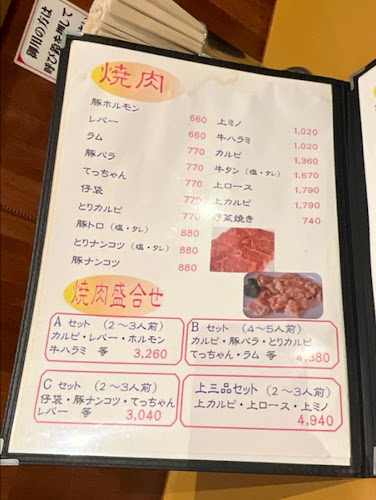 御用の方は
呼び鈴を押して
焼肉
豚ホルモン 660
レバー 660
ラム 770
豚バラ 770
てっちゃん 770
仔袋 770
とりカルビ 770
豚トロ（塩・タレ） 880
とりナンコツ（塩・タレ） 880
豚ナンコツ 880
上ミノ 1,020
牛ハラミ 1,020
カルビ 1,360
牛タン（塩・タレ） 1,670
上ロース 1,790
上カルビ 1,790
野菜焼き 740
焼肉盛合せ
A セット （2～3人前）
カルビ・レバー・ホルモン
牛ハラミ 等 3,260
B セット （4～5人前）
カルビ・豚バラ・とりカルビ
てっちゃん・ラム 等 4,880
C セット （2～3人前）
仔袋・豚ナンコツ・てっちゃん
レバー 等 3,040
上三品セット （2～3人前）
上カルビ・上ロース・上ミノ
4,940